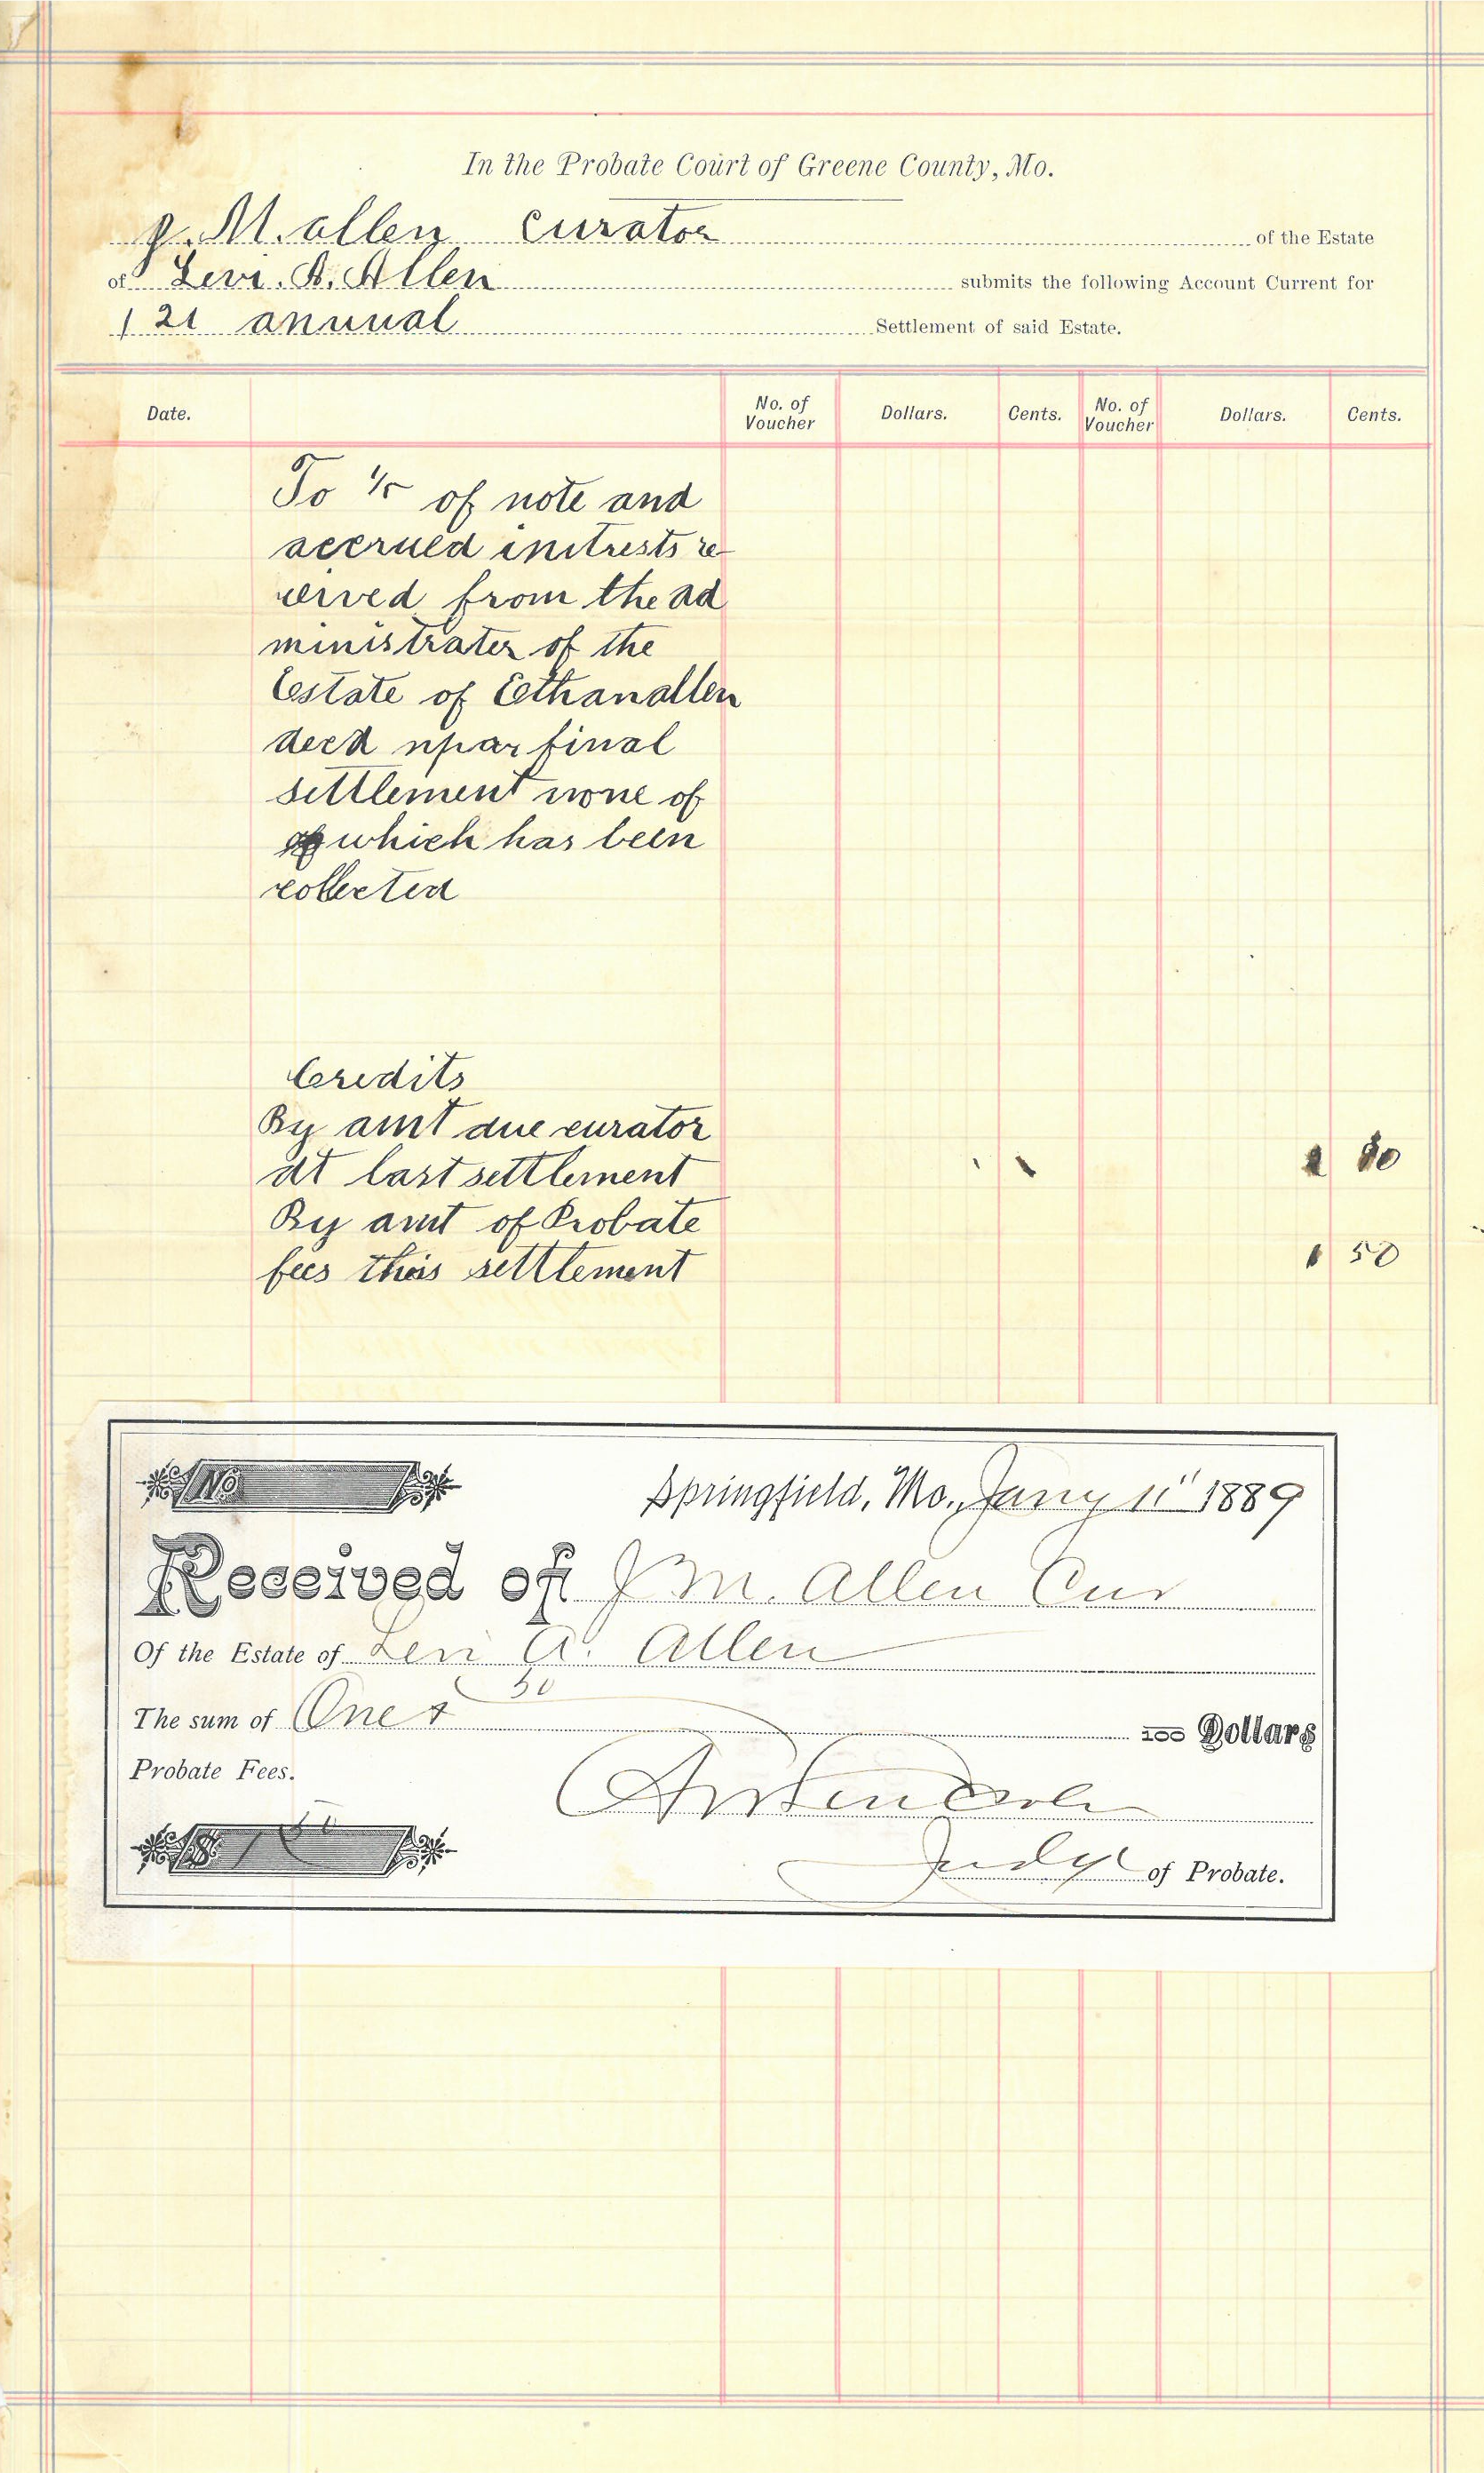 In the Probate Court of Greene County, Mo.
J. M. Allen curator of the Estate
of Levi. A. Allen submits the following Account Current for
121 annual Settlement of said Estate.
Date. No. of Voucher Dollars. Cents. No. of Voucher Dollars. Cents.
To 1/5 of note and
accrued initrests re-
ceived from the ad
ministrater of the
Estate of Eethan allen
decd final
settlement none of
which has been
collected
Credits
By amt due curator
at last settlement 80
By amt of Probate
fees this settlement 1 50
No
Springfield, Mo., Jany 11" 1889
Received of J M. Allen Cur
Of the Estate of Levi A. Allen
The sum of One & 50 100 Dollars
Probate Fees.
$ 1 50
Judge of Probate.